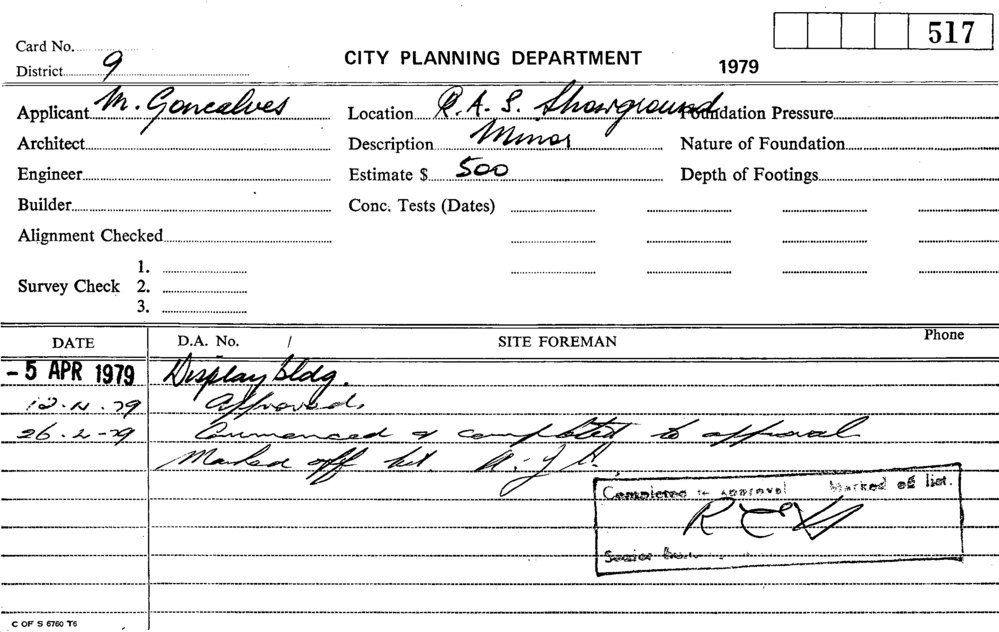 517
Card No.
CITY PLANNING DEPARTMENT 1979
District 9
Applicant M. Goncalves Location R. A. S. Showground Foundation Pressure
Architect Description Minor Nature of Foundation
Engineer Estimate $ 500 Depth of Footings
Builder Conc. Tests (Dates)
Alignment Checked
1.
Survey Check 2.
3.
DATE D.A. No. / SITE FOREMAN Phone
- 5 APR 1979 Display bldg.
12.4.79 Approved.
26-4-79 Commenced & completed to approval
Marked off list.
Completed to approval Marked off list.
Senior
C OF S 6760 T6